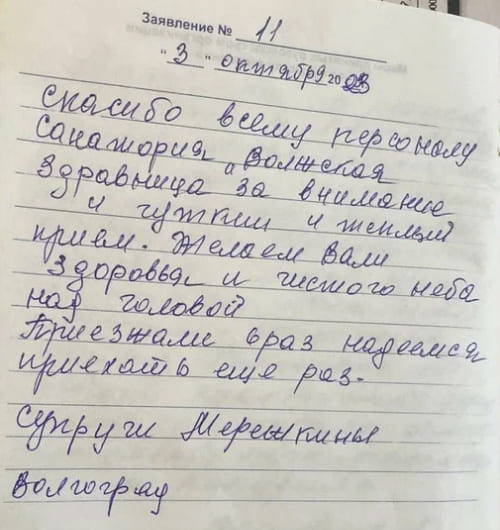 Заявление № 11
" 3 " октября 2023
Спасибо всему персоналу
Санатория "Волжская
Здравница за внимание
и чуткий и теплый
прием. Желаем Вам
Здоровья и чистого неба
над головой
Приезжали 6 раз надеемся
приехать еще раз.
Супруги Мережкины
Волгоград